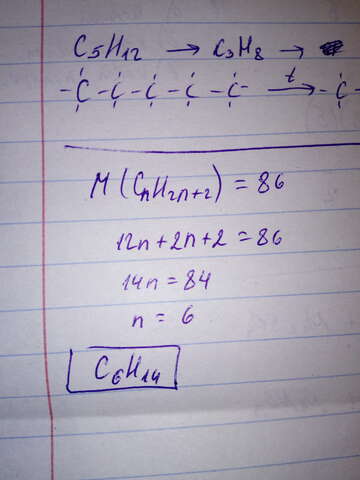 C₅H₁₂ → C₃H₈ →
-C-C-C-C-C- t→ -C-
M(CₙH₂ₙ₊₂) = 86
12n+2n+2=86
14n=84
n = 6
C₆H₁₄